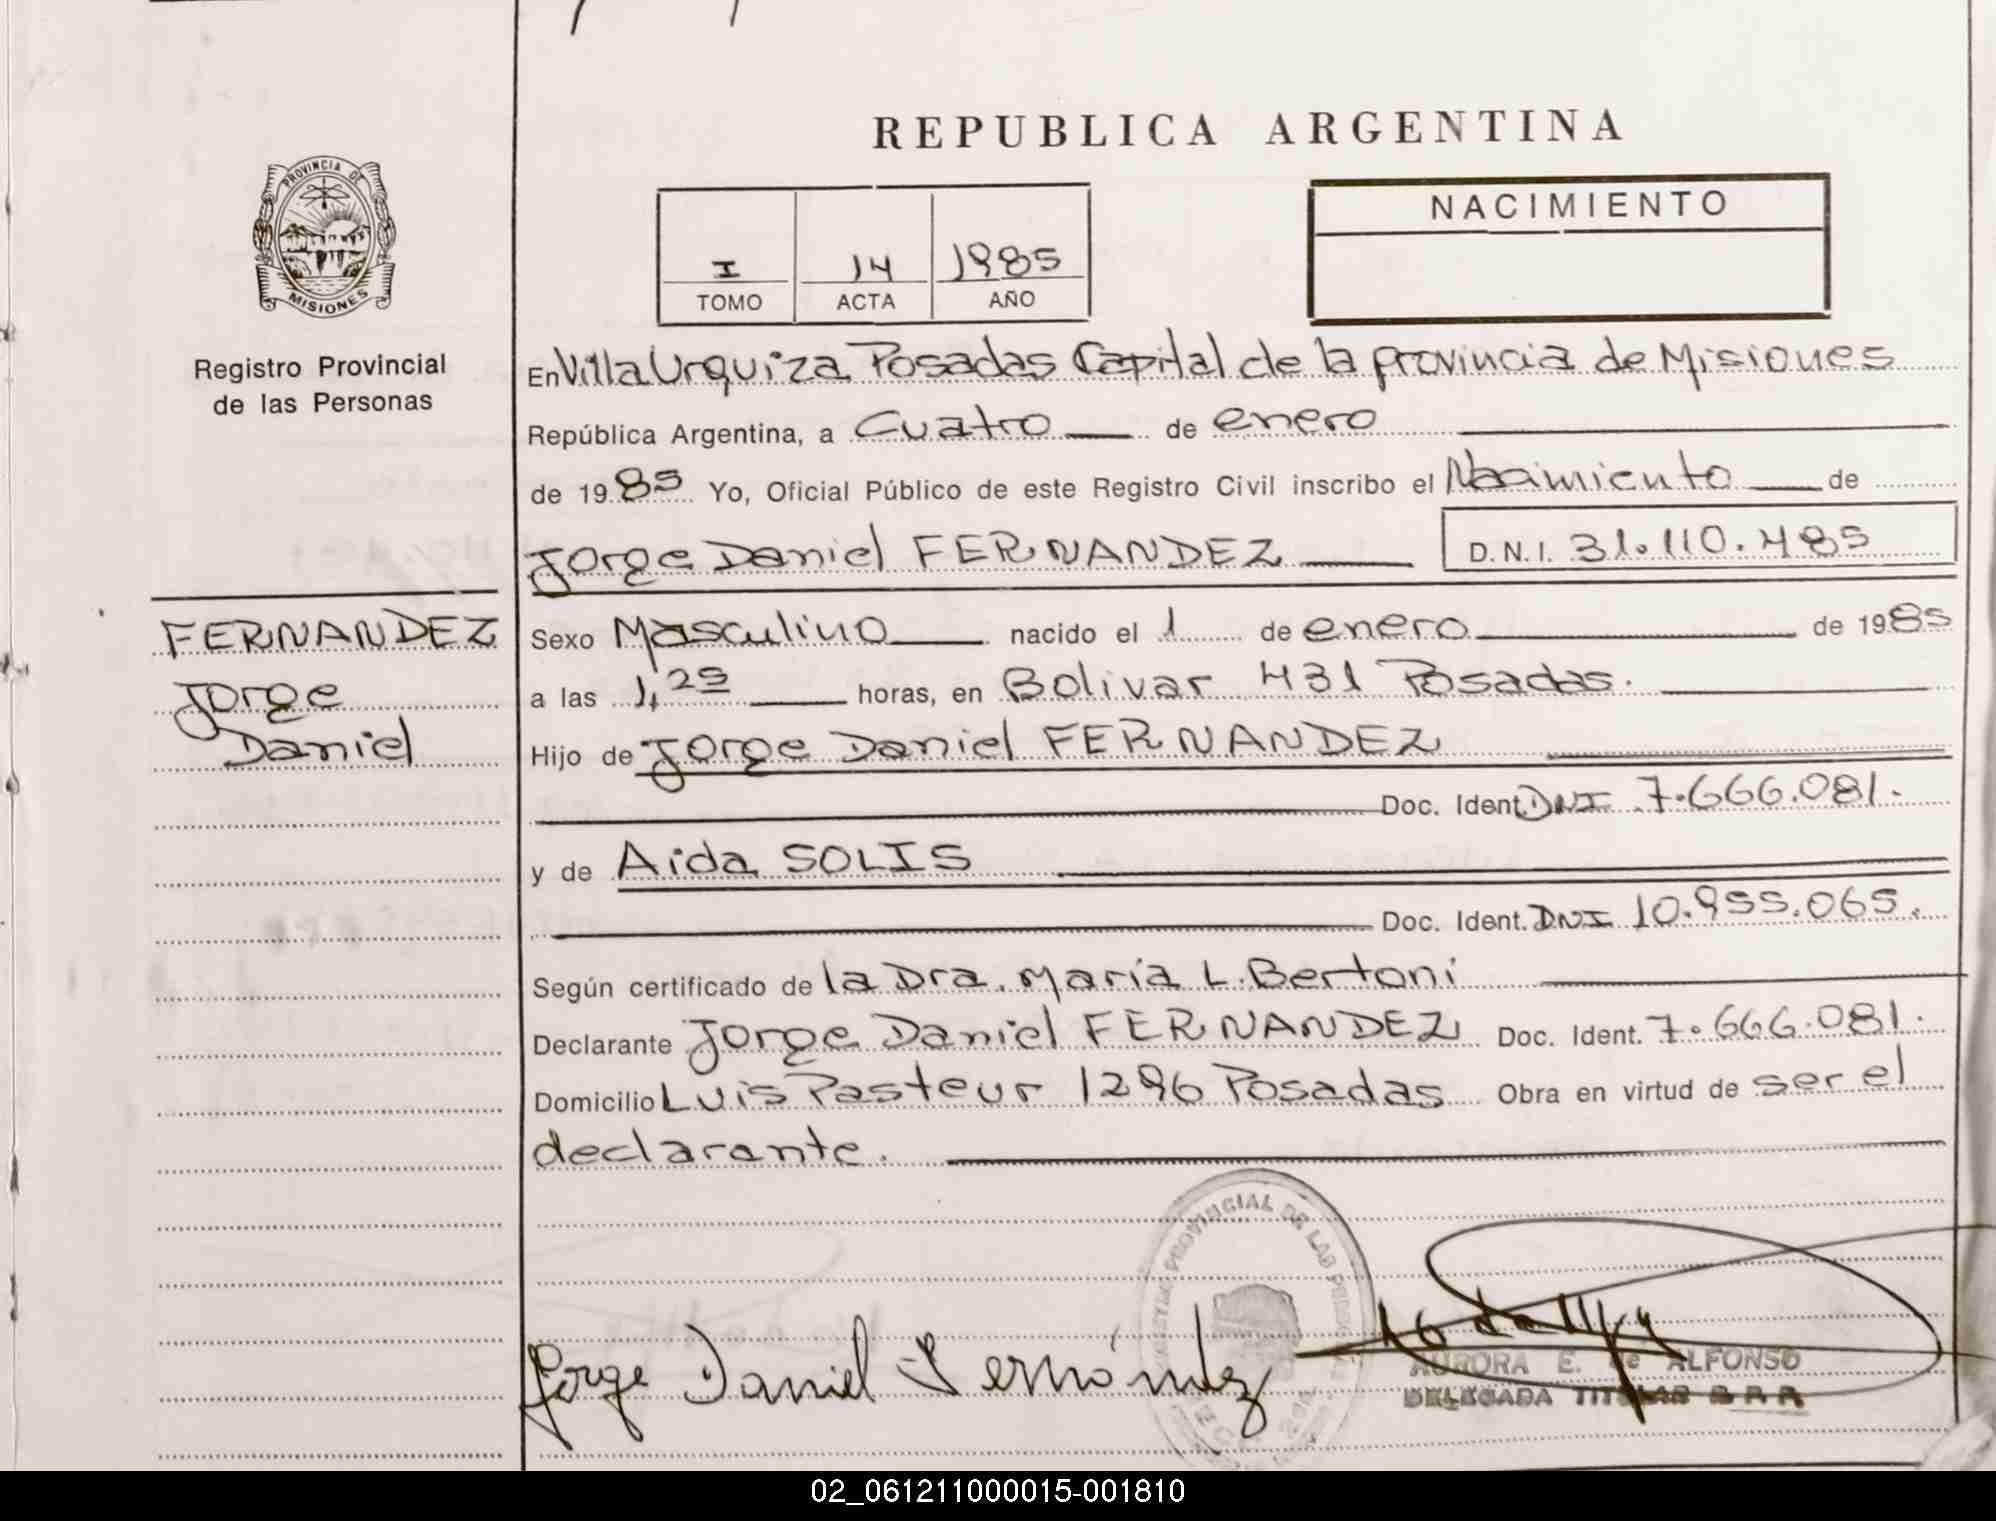 REPUBLICA ARGENTINA
PROVINCIA DE
MISIONES
Registro Provincial
de las Personas
I 14 1985
TOMO ACTA AÑO
NACIMIENTO
En Villa Urquiza Posadas Capital de la provincia de Misiones
República Argentina, a Cuatro de enero
de 1985 Yo, Oficial Público de este Registro Civil inscribo el Nacimiento de
Jorge Daniel FERNANDEZ D.N.I. 31.110.485
FERNANDEZ
Jorge
Daniel
Sexo Masculino nacido el 1 de enero de 1985
a las 1,25 horas, en Bolivar 431 Posadas.
Hijo de Jorge Daniel FERNANDEZ
Doc. Ident. DNI 7.666.081.
y de Aida SOLIS
Doc. Ident. DNI 10.955.065.
Según certificado de la Dra. María L. Bertoni
Declarante Jorge Daniel FERNANDEZ Doc. Ident. 7.666.081.
Domicilio Luis Pasteur 1296 Posadas Obra en virtud de ser el
declarante.
PROVINCIAL DE LAS
Jorge Daniel Fernández
AURORA E. de ALFONSO
DELEGADA TITULAR
02_061211000015-001810